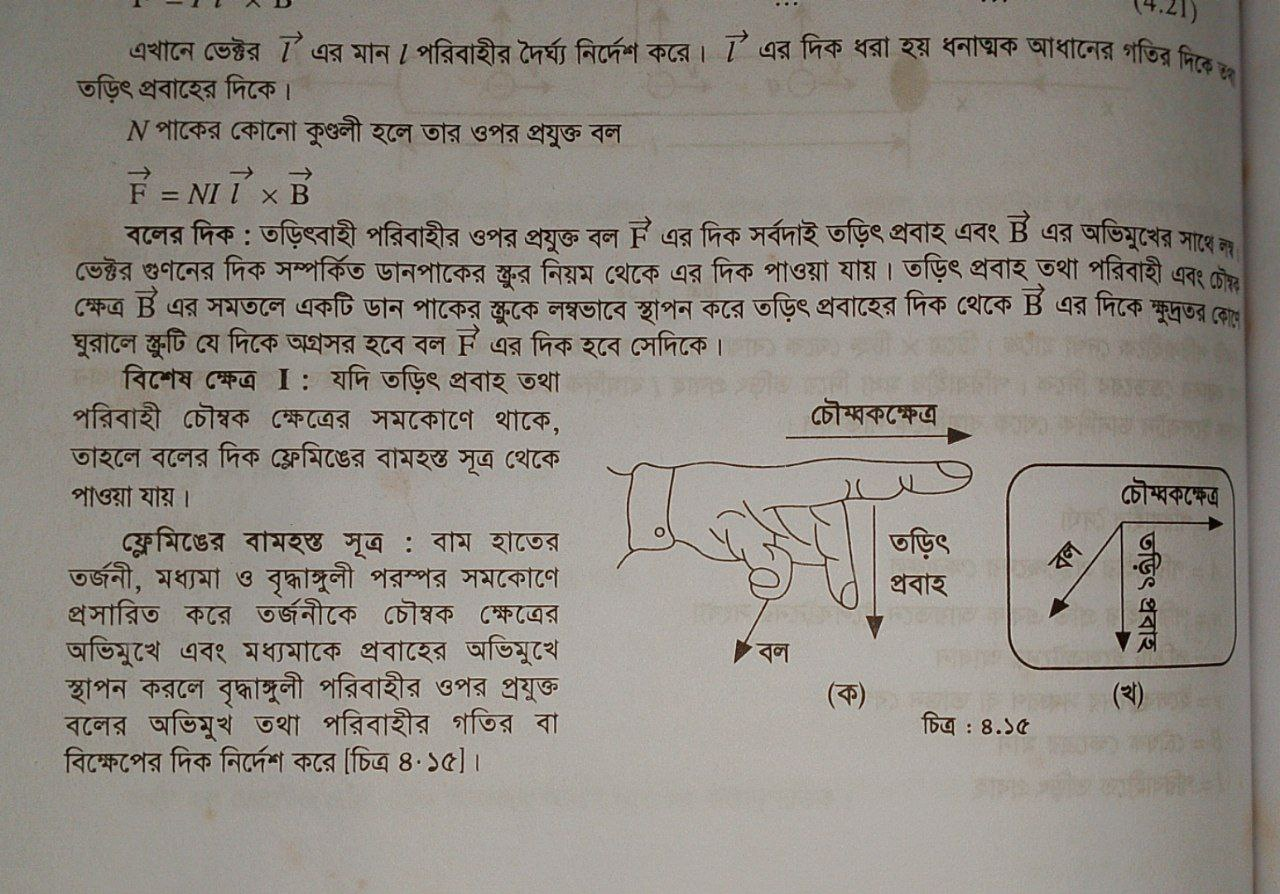 (4.21)
এখানে ভেক্টর l এর মান l পরিবাহীর দৈর্ঘ্য নির্দেশ করে। l এর দিক ধরা হয় ধনাত্মক আধানের গতির দিকে তথা
তড়িৎ প্রবাহের দিকে।
N পাকের কোনো কুণ্ডলী হলে তার ওপর প্রযুক্ত বল
F⃗ = NI l⃗ × B⃗
বলের দিক : তড়িৎবাহী পরিবাহীর ওপর প্রযুক্ত বল F⃗ এর দিক সর্বদাই তড়িৎ প্রবাহ এবং B⃗ এর অভিমুখের সাথে লম্ব
ভেক্টর গুণনের দিক সম্পর্কিত ডানপাকের স্ক্রুর নিয়ম থেকে এর দিক পাওয়া যায়। তড়িৎ প্রবাহ তথা পরিবাহী এবং চৌম্বক
ক্ষেত্র B⃗ এর সমতলে একটি ডান পাকের স্ক্রুকে লম্বভাবে স্থাপন করে তড়িৎ প্রবাহের দিক থেকে B⃗ এর দিকে ক্ষুদ্রতর কোণে
ঘুরালে স্ক্রুটি যে দিকে অগ্রসর হবে বল F⃗ এর দিক হবে সেদিকে।
বিশেষ ক্ষেত্র I : যদি তড়িৎ প্রবাহ তথা
পরিবাহী চৌম্বক ক্ষেত্রের সমকোণে থাকে,
তাহলে বলের দিক ফ্লেমিঙের বামহস্ত সূত্র থেকে
পাওয়া যায়।
ফ্লেমিঙের বামহস্ত সূত্র : বাম হাতের
তর্জনী, মধ্যমা ও বৃদ্ধাঙ্গুলী পরস্পর সমকোণে
প্রসারিত করে তর্জনীকে চৌম্বক ক্ষেত্রের
অভিমুখে এবং মধ্যমাকে প্রবাহের অভিমুখে
স্থাপন করলে বৃদ্ধাঙ্গুলী পরিবাহীর ওপর প্রযুক্ত
বলের অভিমুখ তথা পরিবাহীর গতির বা
বিক্ষেপের দিক নির্দেশ করে [চিত্র ৪·১৫]।
চৌম্বকক্ষেত্র
তড়িৎ
প্রবাহ
বল
(ক)
চৌম্বকক্ষেত্র
বল
তড়িৎ প্রবাহ
(খ)
চিত্র : ৪.১৫